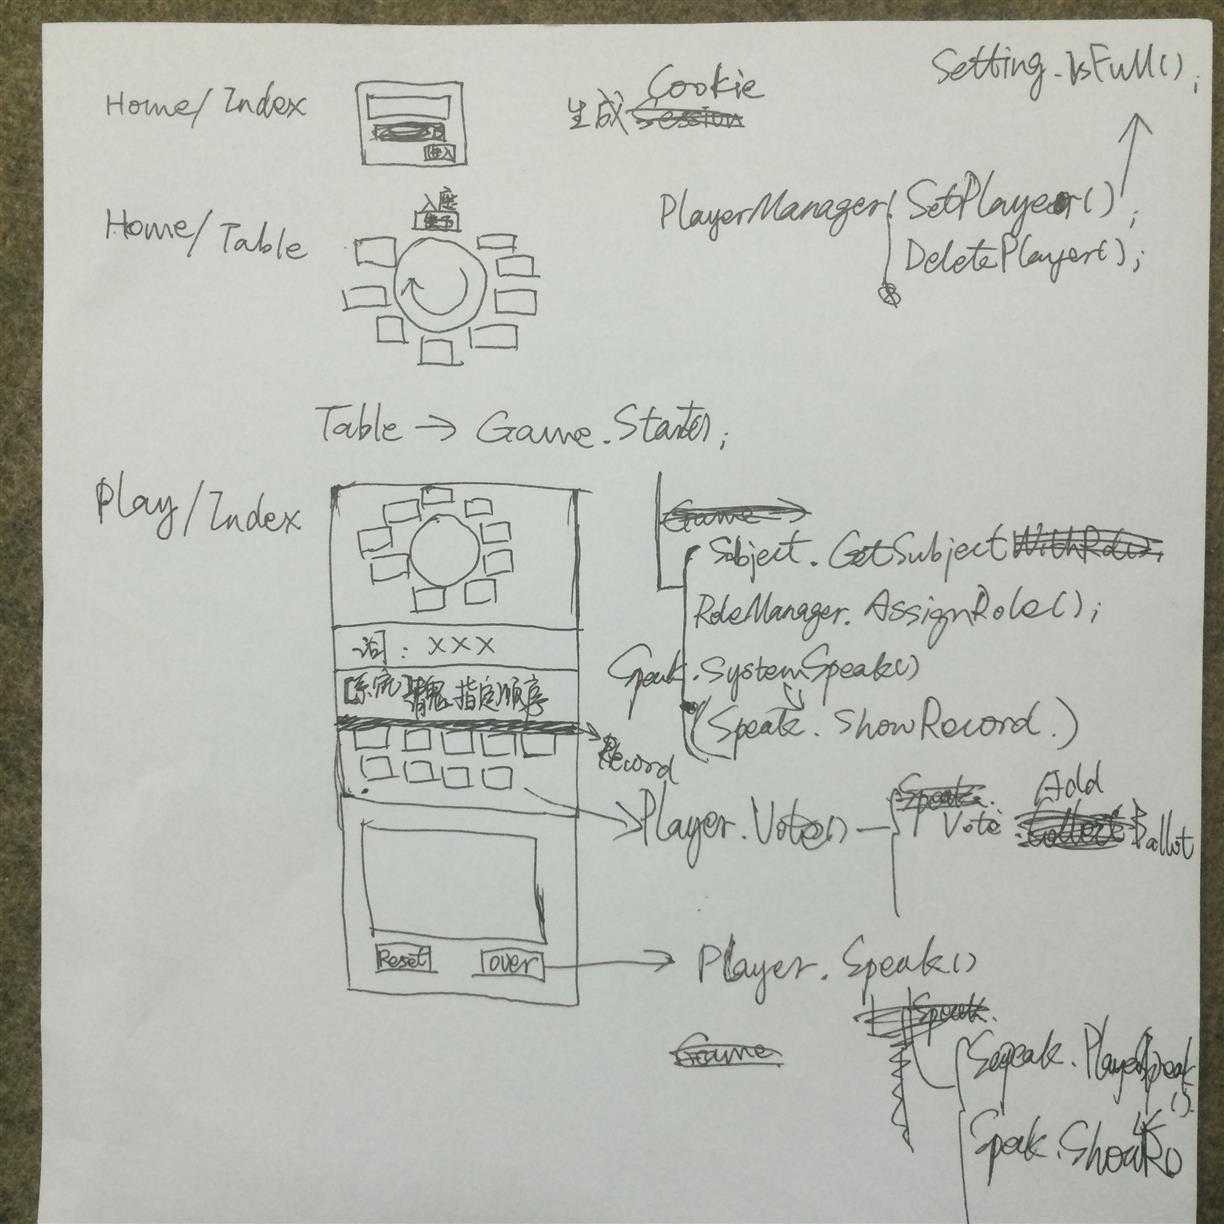 Setting.IsFull();
Home/Index
进入
生成 Cookie
Session
Home/Table
入座
PlayerManager.SetPlayer();
DeletePlayer();
Table → Game.Start();
Play/Index
Game →
Subject.GetSubject WithRole();
RoleManager.AssignRole();
词: XXX
Speak.SystemSpeak()
[系统] 请鬼指定顺序
(Speak.ShowRecord.)
Record
Player.Vote() — Speak.
Vote Add Collect Ballot
Reset
over
Player.Speak()
Speak.
Game
Speak.PlayerSpeak();